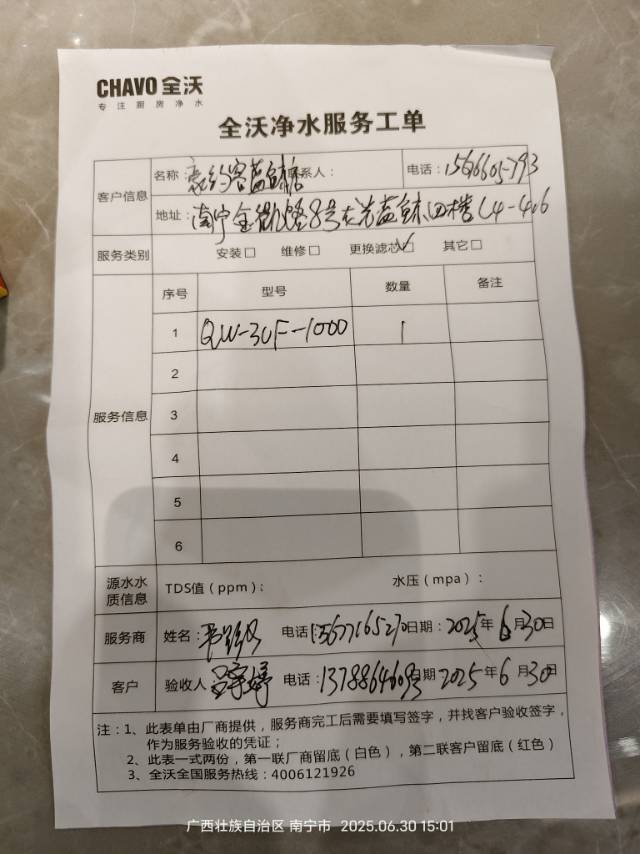 CHAVO 全沃
专注厨房净水
全沃净水服务工单
客户信息
名称： 联系人： 电话：
地址：南宁金湖路8号 L4-406
服务类别 安装□ 维修□ 更换滤芯☑ 其它□
服务信息
序号 型号 数量 备注
1 QW-3UF-1000 1
2
3
4
5
6
源水水质信息 TDS值（ppm）： 水压（mpa）：
服务商 姓名： 电话：15677165270 日期：2025年6月30日
客户 验收人 电话： 日期 2025年6月30日
注：1、此表单由厂商提供，服务商完工后需要填写签字，并找客户验收签字，
作为服务验收的凭证；
2、此表一式两份，第一联厂商留底（白色），第二联客户留底（红色）
3、全沃全国服务热线：4006121926
广西壮族自治区 南宁市 2025.06.30 15:01